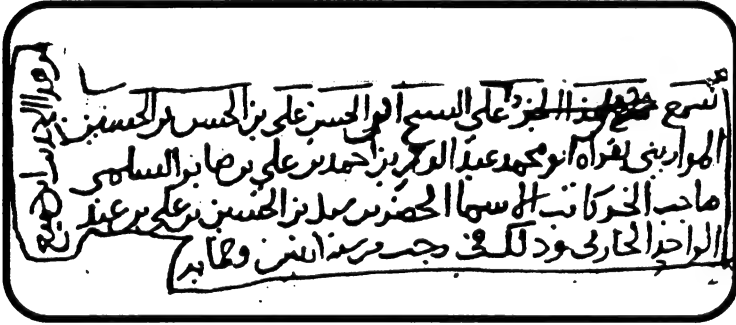 سمع جميع هذا الجزء على الشيخ ابى الحسن على بن الحسن بن الحسين
الموازينى بقراة ابو محمد عبد الرحمن بن احمد بن على بن صابر السلمى
صاحب الجزء كاتب الاسما الخضر بن شبل بن الحسين بن على بن عبد
الواحد الحارثى وذلك فى رجب من سنة اثنين وخمسمائة